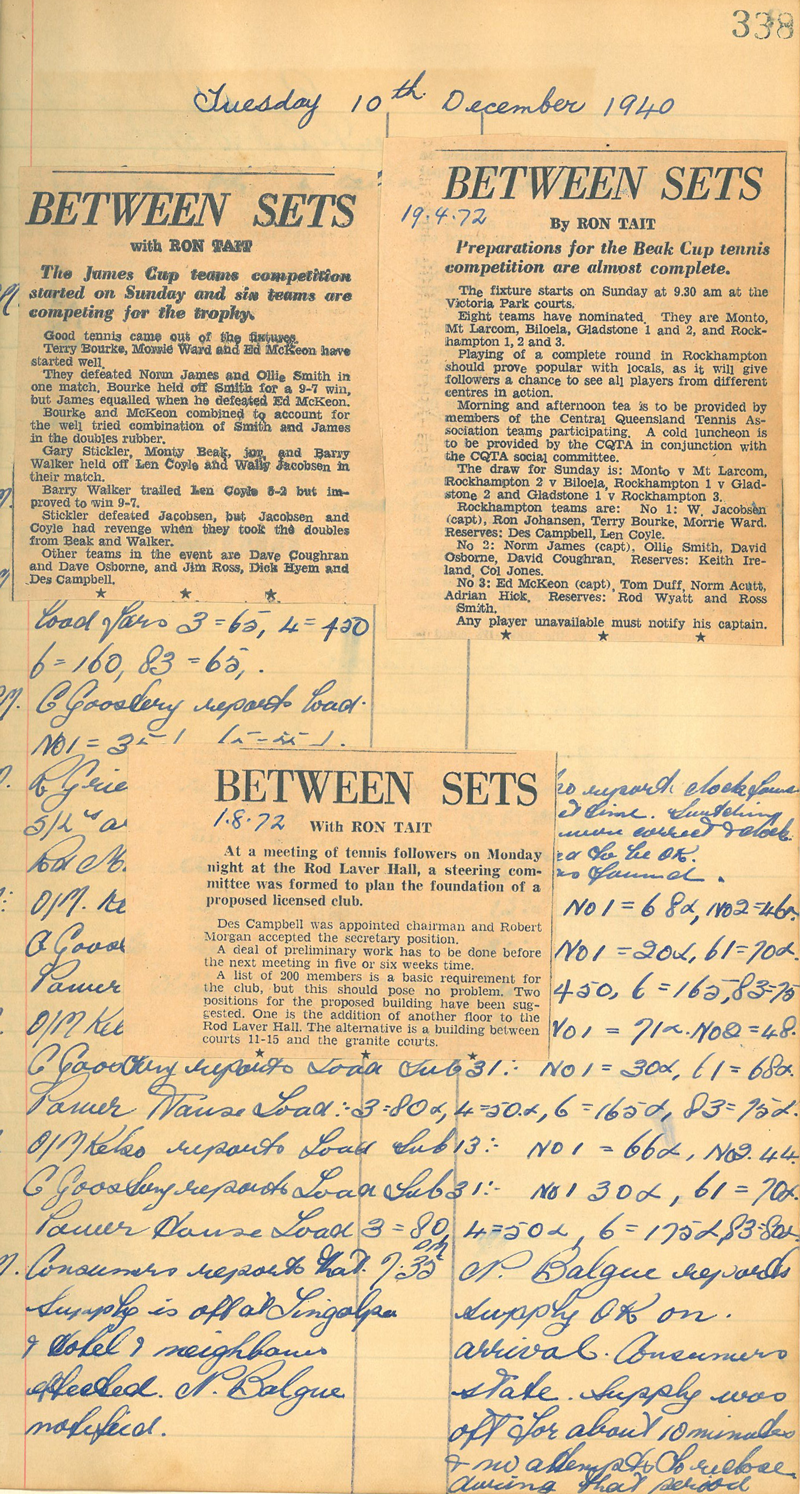 338
Tuesday 10th December 1940
BETWEEN SETS
with RON TAIT
The James Cup teams competition
started on Sunday and six teams are
competing for the trophy.
Good tennis came out of the fixtures.
Terry Bourke, Morrie Ward and Ed McKeon have
started well.
They defeated Norm James and Ollie Smith in
one match, Bourke held off Smith for a 9-7 win,
but James equalled when he defeated Ed McKeon.
Bourke and McKeon combined to account for
the well tried combination of Smith and James
in the doubles rubber.
Gary Stickler, Monty Beak, jnr, and Barry
Walker held off Len Coyle and Wally Jacobsen in
their match.
Barry Walker trailed Len Coyle 5-2 but im-
proved to win 9-7.
Stickler defeated Jacobsen, but Jacobsen and
Coyle had revenge when they took the doubles
from Beak and Walker.
Other teams in the event are Dave Coughran
and Dave Osborne, and Jim Ross, Dick Hyem and
Des Campbell.
BETWEEN SETS
19.4.72
By RON TAIT
Preparations for the Beak Cup tennis
competition are almost complete.
The fixture starts on Sunday at 9.30 am at the
Victoria Park courts.
Eight teams have nominated. They are Monto,
Mt Larcom, Biloela, Gladstone 1 and 2, and Rock-
hampton 1, 2 and 3.
Playing of a complete round in Rockhampton
should prove popular with locals, as it will give
followers a chance to see all players from different
centres in action.
Morning and afternoon tea is to be provided by
members of the Central Queensland Tennis As-
sociation teams participating. A cold luncheon is
to be provided by the CQTA in conjunction with
the CQTA social committee.
The draw for Sunday is: Monto v Mt Larcom,
Rockhampton 2 v Biloela, Rockhampton 1 v Glad-
stone 2 and Gladstone 1 v Rockhampton 3.
Rockhampton teams are: No 1: W. Jacobsen
(capt), Ron Johansen, Terry Bourke, Morrie Ward.
Reserves: Des Campbell, Len Coyle.
No 2: Norm James (capt), Ollie Smith, David
Osborne, David Coughran. Reserves: Keith Ire-
land, Col Jones.
No 3: Ed McKeon (capt), Tom Duff, Norm Acutt,
Adrian Hick. Reserves: Rod Wyatt and Ross
Smith.
Any player unavailable must notify his captain.
Load 3 = 65, 4 = 450
6 = 160, 83 = 65,.
C Goostery reports load
No 1 = 35
BETWEEN SETS
1.8.72
With RON TAIT
At a meeting of tennis followers on Monday
night at the Rod Laver Hall, a steering com-
mittee was formed to plan the foundation of a
proposed licensed club.
Des Campbell was appointed chairman and Robert
Morgan accepted the secretary position.
A deal of preliminary work has to be done before
the next meeting in five or six weeks time.
A list of 200 members is a basic requirement for
the club, but this should pose no problem. Two
positions for the proposed building have been sug-
gested. One is the addition of another floor to the
Rod Laver Hall. The alternative is a building between
courts 11-15 and the granite courts.
report clock
time.
correct & clock
to be OK.
found.
No 1 = 68α, No 2 = 46
No 1 = 20α, 61 = 70α
450, 6 = 165, 83 = 75
No 1 = 71α. No 2 = 48.
C Goostery reports Load Sub 31:- No 1 = 30α, 61 = 68α.
Power House Load:- 3 = 80α, 4 = 50α, 6 = 165α, 83 = 75α.
O/M Kelso reports Load Sub 13:- No 1 = 66α, No 2. 44.
C Goostery reports Load Sub 31:- No 1 30α, 61 = 70α
Power House Load 3 = 80, 4 = 50α, 6 = 175α, 83 = 80α.
Consumers reports that 7.35 pm
supply is off at Tingalpa
& Hotel & neighbours
effected. N. Balgue
notified.
N. Balgue reports
supply OK on
arrival. Consumers
state. Supply was
off for about 10 minutes
& no attempt to reclose
during that period